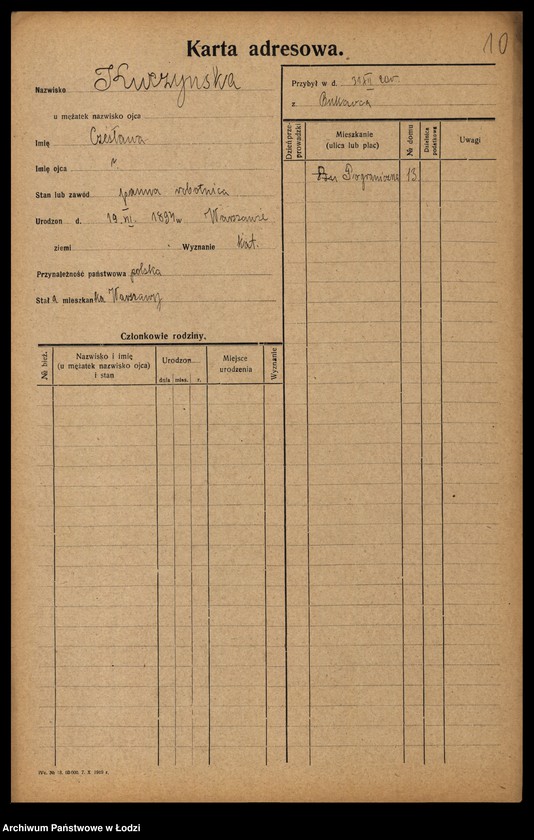 10
Karta adresowa.
Nazwisko Kuczynska
u mężatek nazwisko ojca
Imię Czesława
Imię ojca
Stan lub zawód panna robotnica
Urodzon d. 19 VII. 1897 w Warszawie
ziemi Wyznanie kat.
Przynależność państwowa polska
Stała mieszkanka Warszawy
Członkowie rodziny.
№ bież.
Nazwisko i imię
(u mężatek nazwisko ojca)
i stan
Urodzon
dnia mies. r.
Miejsce
urodzenia
Wyznanie
Przybył w d.
z
Dzień prze-
prowadzki
Mieszkanie
(ulica lub plac)
№ domu
Dzielnica
podatkowa
Uwagi
Pograniczna 13
Archiwum Państwowe w Łodzi